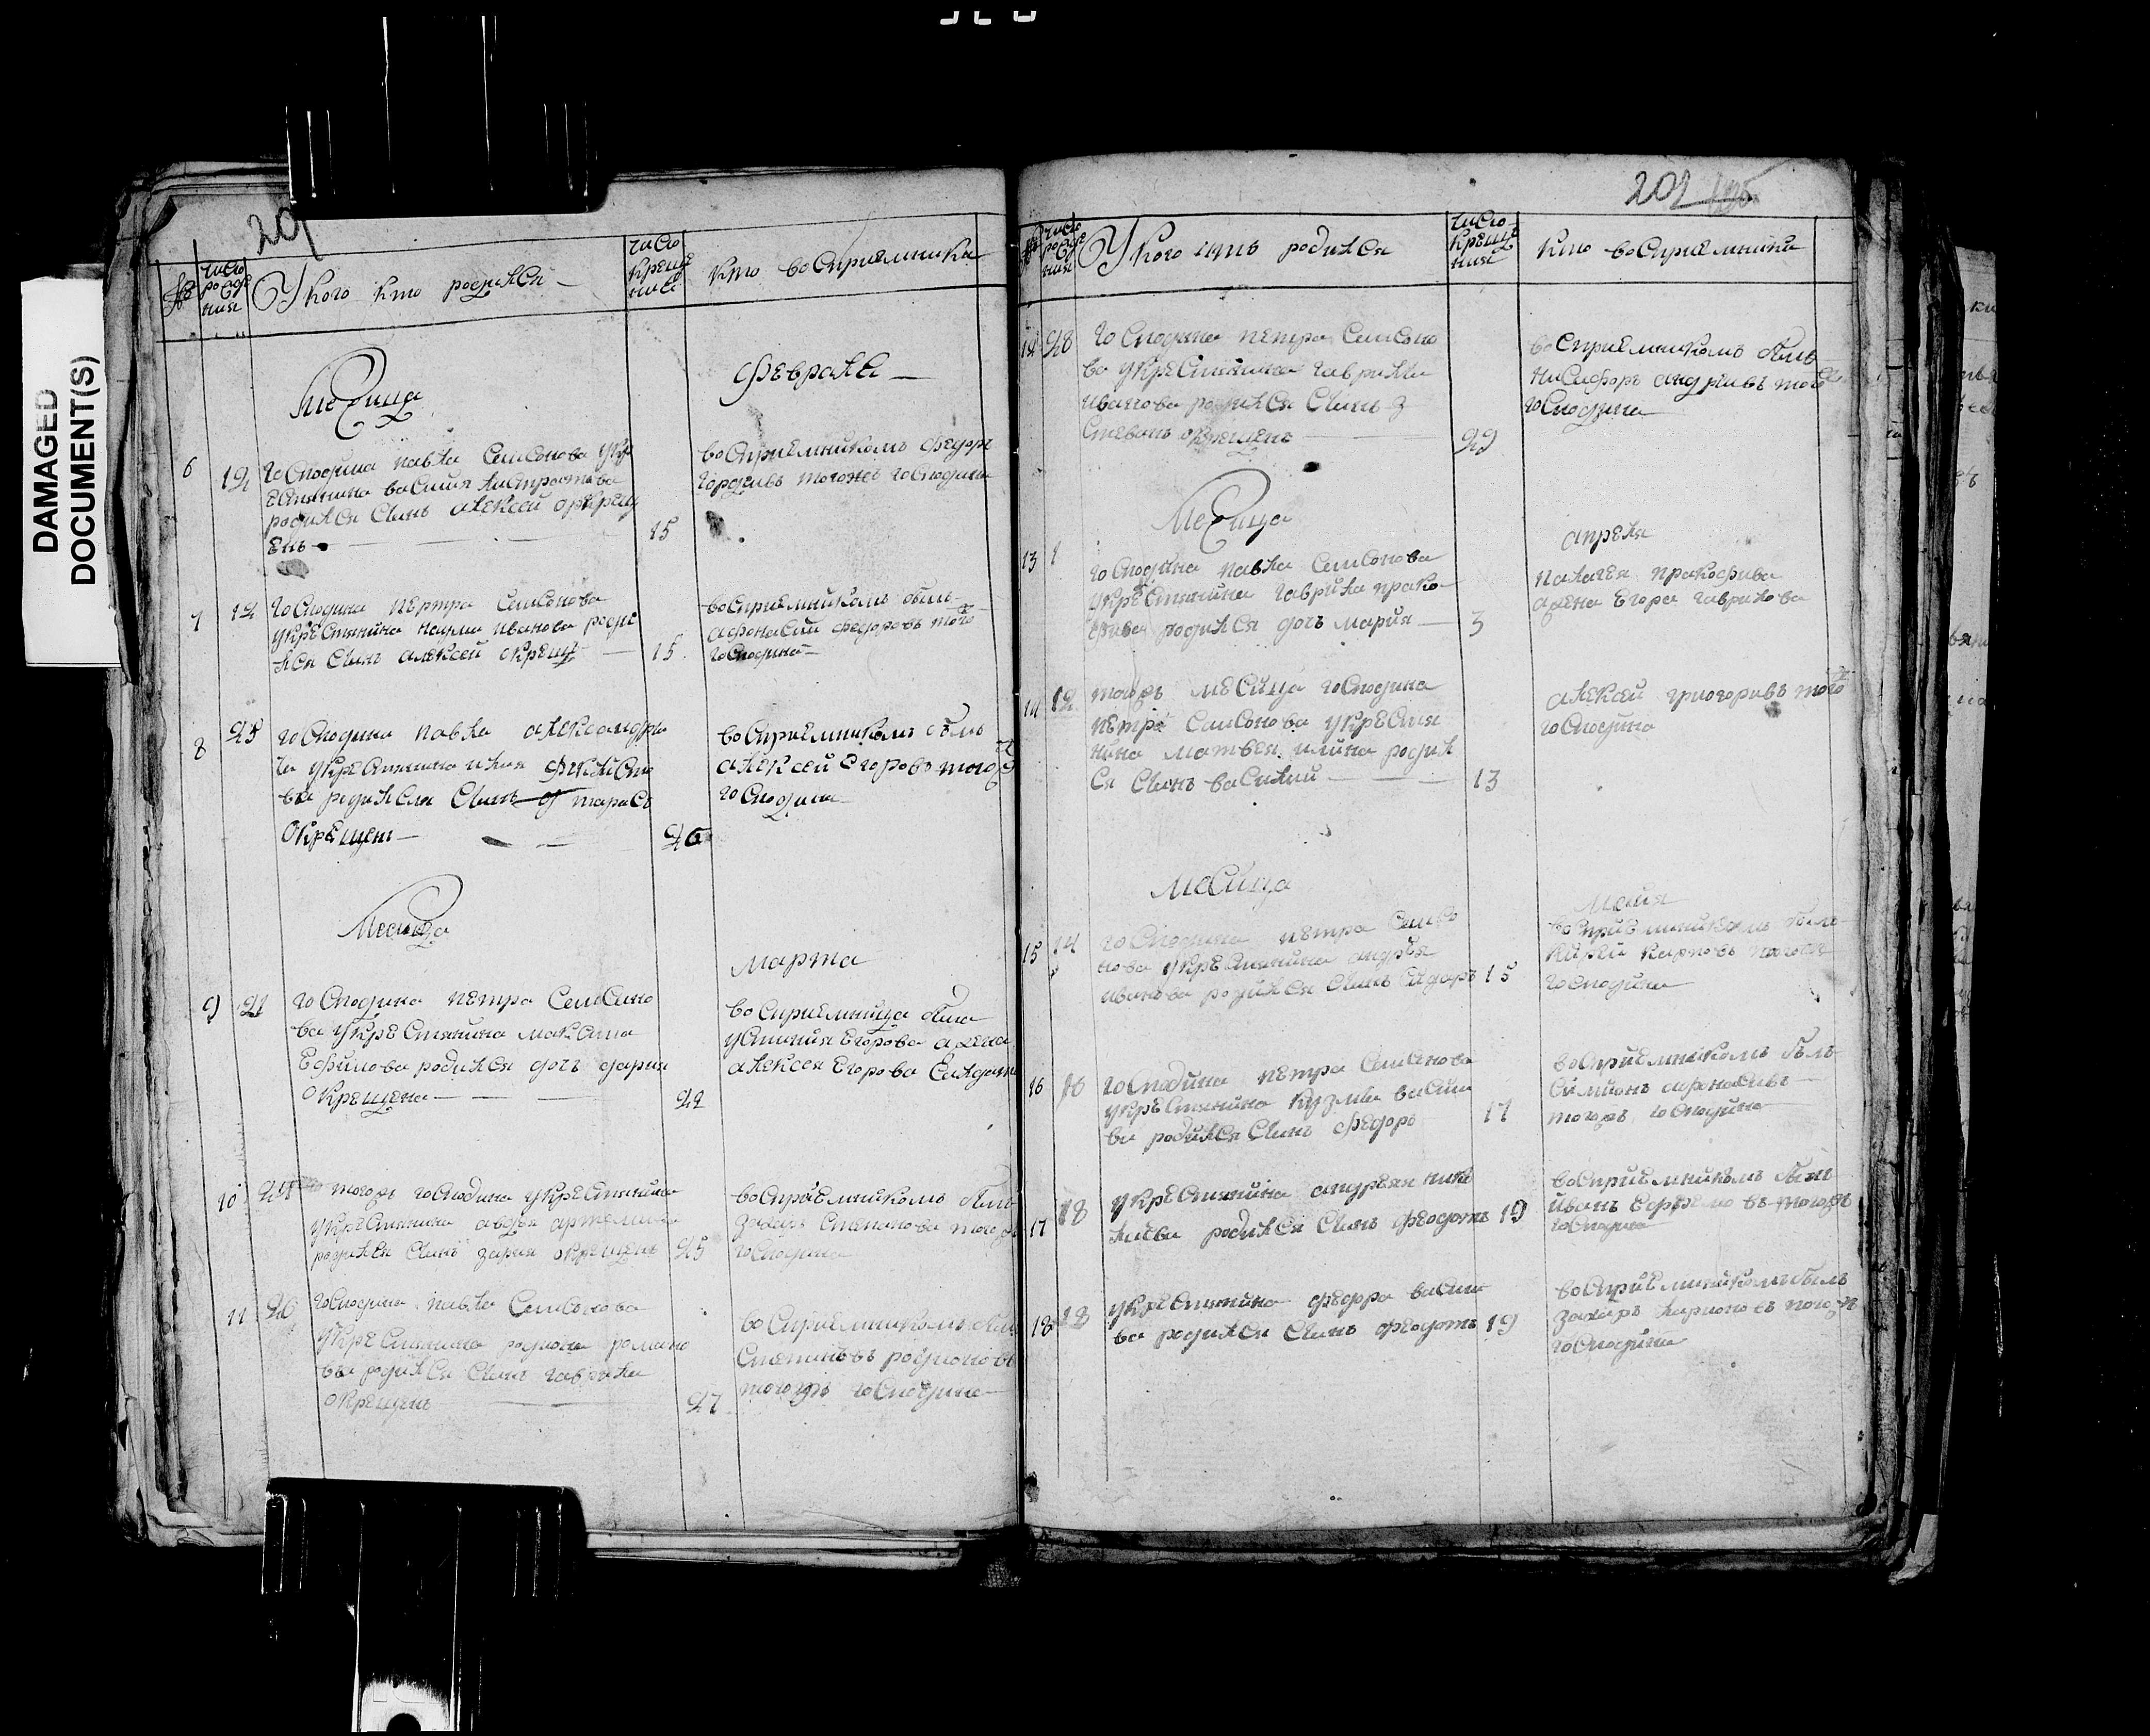 DAMAGED
DOCUMENT(S)
201
№
число рожде ния
У кого кто родился
число креще ния
кто восприемника
месица
февраля
6
12
господина павла самсонова укр
естянина василия
родился сынъ алексей окрещ
енъ
15
восприемникомъ федоръ
гордеивъ тогоже господина
7
14
господина петра самсонова
укрестянина наума иванова роди
лся сынъ алексей окреще
15
восприемникомъ былъ
афонасий федоровъ того
господина
8
25
господина павла александри
ча укрестянина
ва родился сынъ тарасъ
окрещенъ
26
восприемникомъ былъ
алексей егоровъ тогоже
господина
Месица
марта
9
21
господина петра самсоно
ва укрестянина максима
ефимова родился дочъ дария
окрещена
22
восприемница была
устиния егорова
алексея егорова
10
24
тогожъ господина укрестянина
укрестянина авдея артемива
родился сынъ окрещенъ
25
восприемникомъ былъ
захаръ степанова тогоже
господина
11
26
господина павла самсонова
укрестянина родиона романо
ва родился сынъ гаврила
окрещенъ
27
восприемникомъ былъ
родионовъ
тогожъ господина
202
число рожде ния
У кого кто родился
число креще ния
кто восприемника
12
28
господина петра самсоно
ва укрестянина гаврила
иванова родился сынъ
степанъ окрещенъ
29
восприемникомъ былъ
никифоръ андреивъ того
господина
месица
апреля
13
1
господина павла самсонова
укрестянина гаврила прако
фива родился дочъ мария
3
палагея пракофива
егора гаврилова
14
12
тогожъ месица господина
петра самсонова укрестя
нина матвея илина родил
ся сынъ василий
13
алексей григоривъ того
господина
месица
маия
15
14
господина петра самсо
нова укрестянина андрея
иванова родился сынъ сидоръ
15
восприемникомъ былъ
карповъ тогоже
господина
16
16
господина петра самсонова
укрестянина кузмы васи
ва родился сынъ федоръ
17
восприемникомъ былъ
симионъ афонасивъ
тогожъ господина
17
18
укрестянина андреян
родился сынъ феодотъ
19
восприемникомъ былъ
иванъ ефремовъ тогожъ
господина
18
18
укрестянина федора васи
ва родился сынъ феодотъ
19
восприемникомъ былъ
захаръ ларионовъ тогожъ
господина